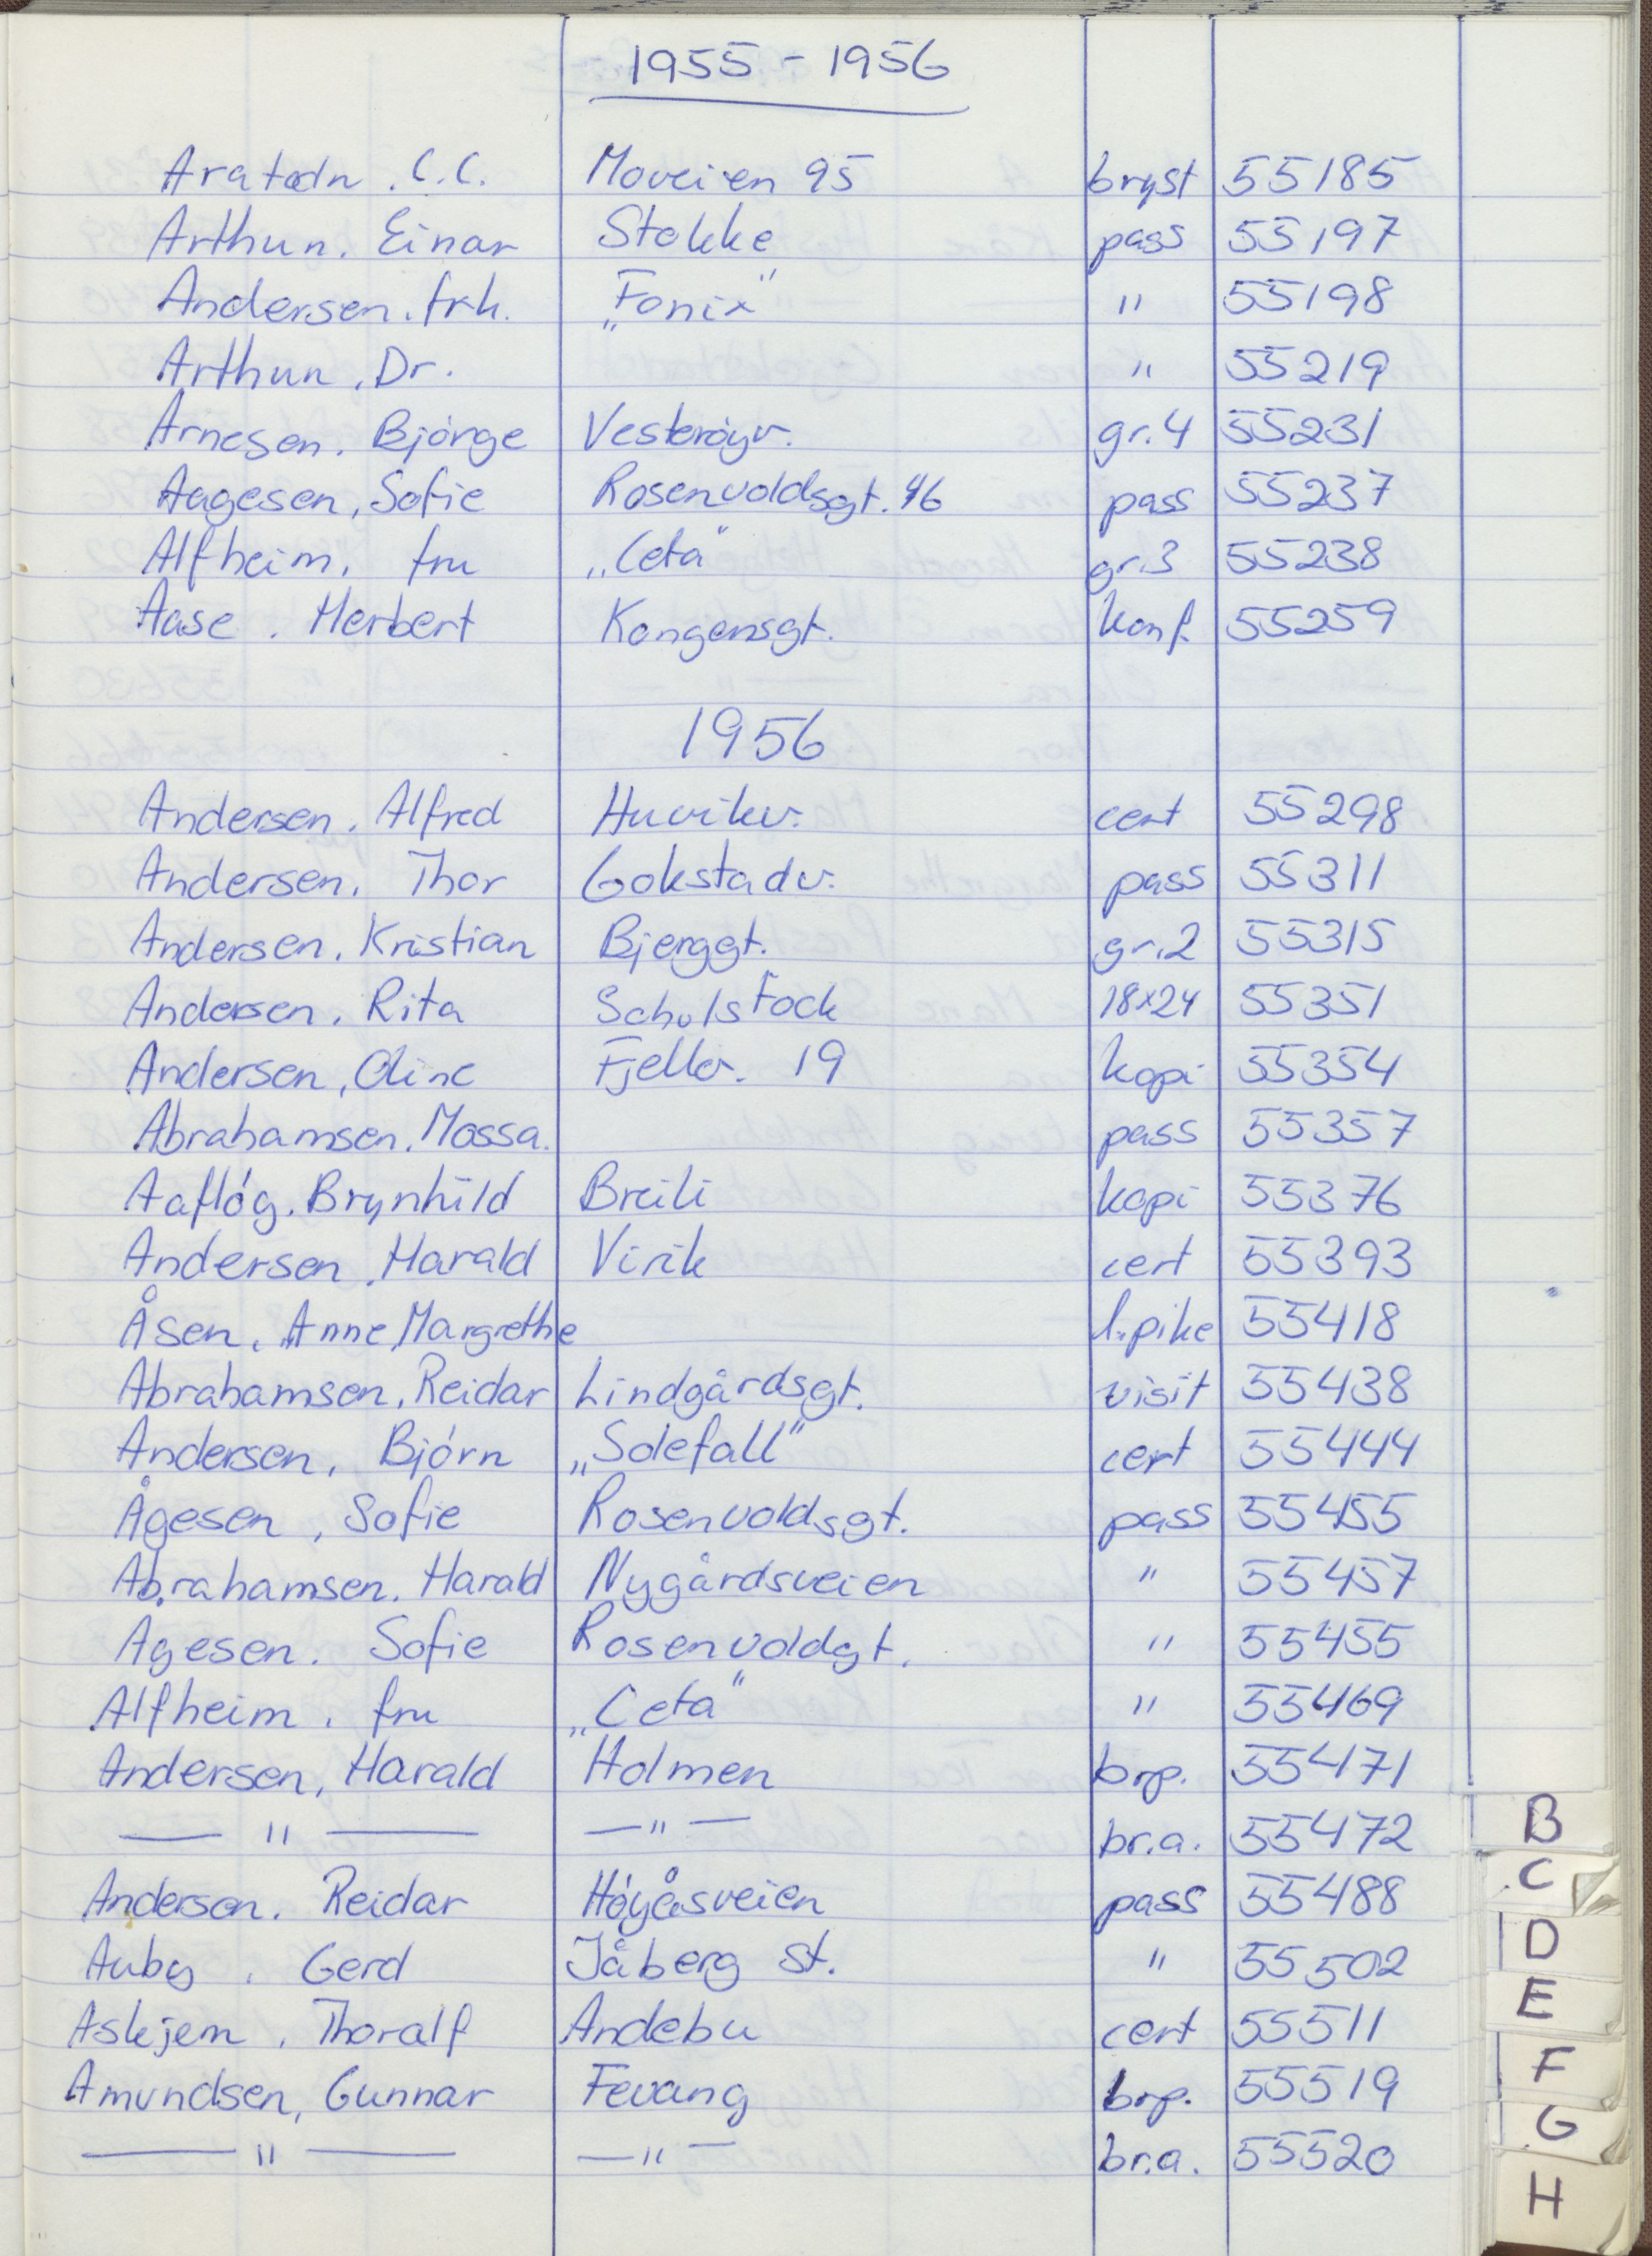 1955 - 1956
Aratodn. C.C. Moveien 95 bryst 55185
Arthun. Einar Stokke pass 55197
Andersen. frk. „Fonix" " 55198
Arthun. Dr. " 55219
Arnesen. Bjørge Vesterøyv. gr.4 55231
Aagesen, Sofie Rosenvoldsgt. 46 pass 55237
Alfheim. fru „Ceta" gr.3 55238
Aase. Herbert Kongensgt. konf. 55259
1956
Andersen. Alfred Huvikv. cert 55298
Andersen. Thor Gokstadv. pass 55311
Andersen. Kristian Bjerggt. gr.2 55315
Andersen. Rita Schulstock 18x24 55351
Andersen, Oline Fjellv. 19 kopi 55354
Abrahamsen. Mossa. pass 55357
Aafløg. Brynhild Breili kopi 55376
Andersen. Harald Virik cert 55393
Åsen. Anne Margrethe l.pike 55418
Abrahamsen, Reidar Lindgårdsgt. visit 55438
Andersen, Bjørn „Solefall" cert 55444
Ågesen, Sofie Rosenvoldsgt. pass 55455
Abrahamsen. Harald Nygårdsveien " 55457
Agesen. Sofie Rosenvoldgt. " 55455
Alfheim. fru „Ceta" " 55469
Andersen, Harald Holmen brp. 55471
— " — — " — br.a. 55472
Andersen. Reidar Høyåsveien pass 55488
Auby. Gerd Jåberg st. " 55502
Askjem. Thoralf Andebu cert 55511
Amundsen, Gunnar Fevang brp. 55519
— " — — " — br.a. 55520
B
C
D
E
F
G
H